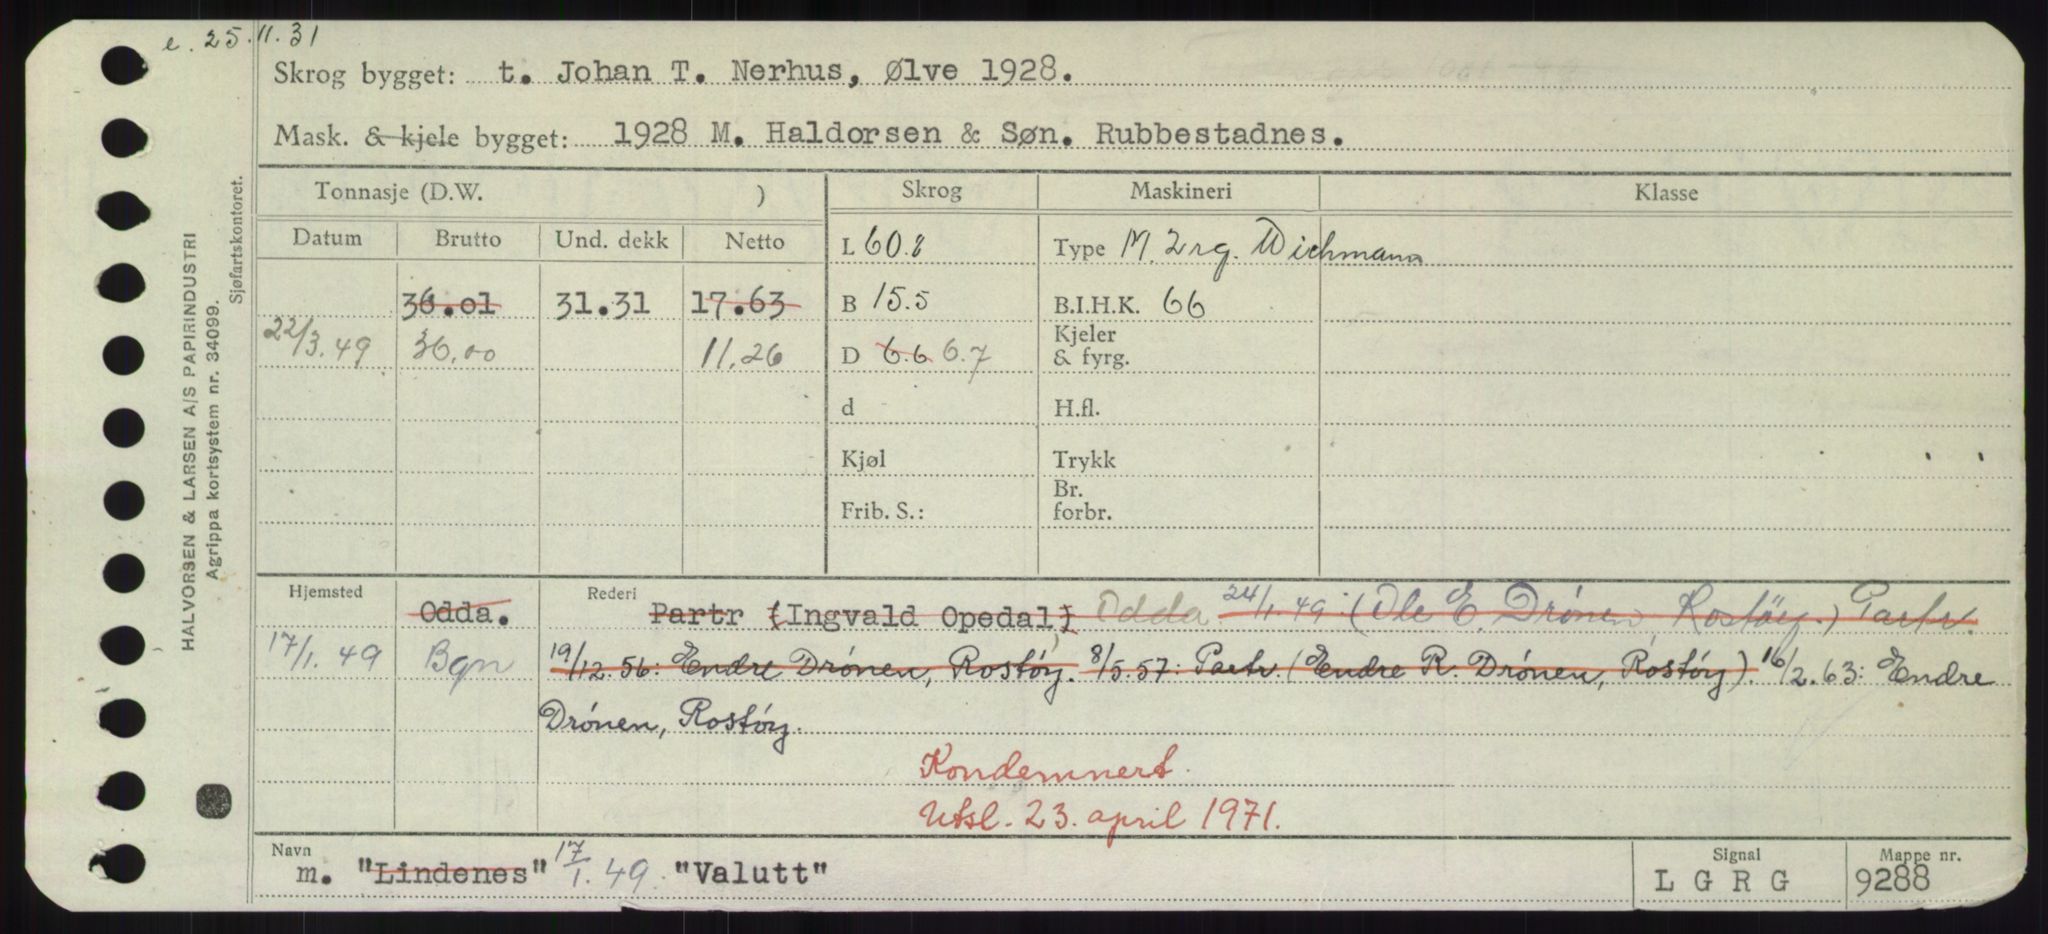 e. 25.11.31
Skrog bygget: t. Johan T. Nerhus, Ølve 1928.
Mask. & kjele bygget: 1928 M. Haldorsen & Søn. Rubbestadnes.
HALVORSEN & LARSEN A/S PAPIRINDUSTRI
Agrippa kortsystem nr. 34099.
Sjøfartskontoret.
Tonnasje (D.W. ) Skrog Maskineri Klasse
Datum Brutto Und. dekk Netto L 60.8 Type M. 2 rg. Wichmann
36.01 31.31 17.63 B 15.5 B.I.H.K. 66
22/3.49 36,00 11,26 D 6.6 6.7 Kjeler & fyrg.
d H.fl.
Kjøl Trykk
Frib. S.: Br. forbr.
Hjemsted Odda. Rederi Partr (Ingvald Opedal) Odda 24/1.49: (Ole E. Drönen, Rostöy.) Partr.
17/1.49 Bgn 19/12.56: Endre Drónen, Rostóy. 8/5.57: Partr. (Endre R. Drónen, Rostóy). 16/2.63: Endre
Drónen, Rostóy.
Kondemnert.
Utsl. 23. april 1971.
Navn m. "Lindenes" 17/1.49. "Valutt" Signal L G R G Mappe nr. 9288